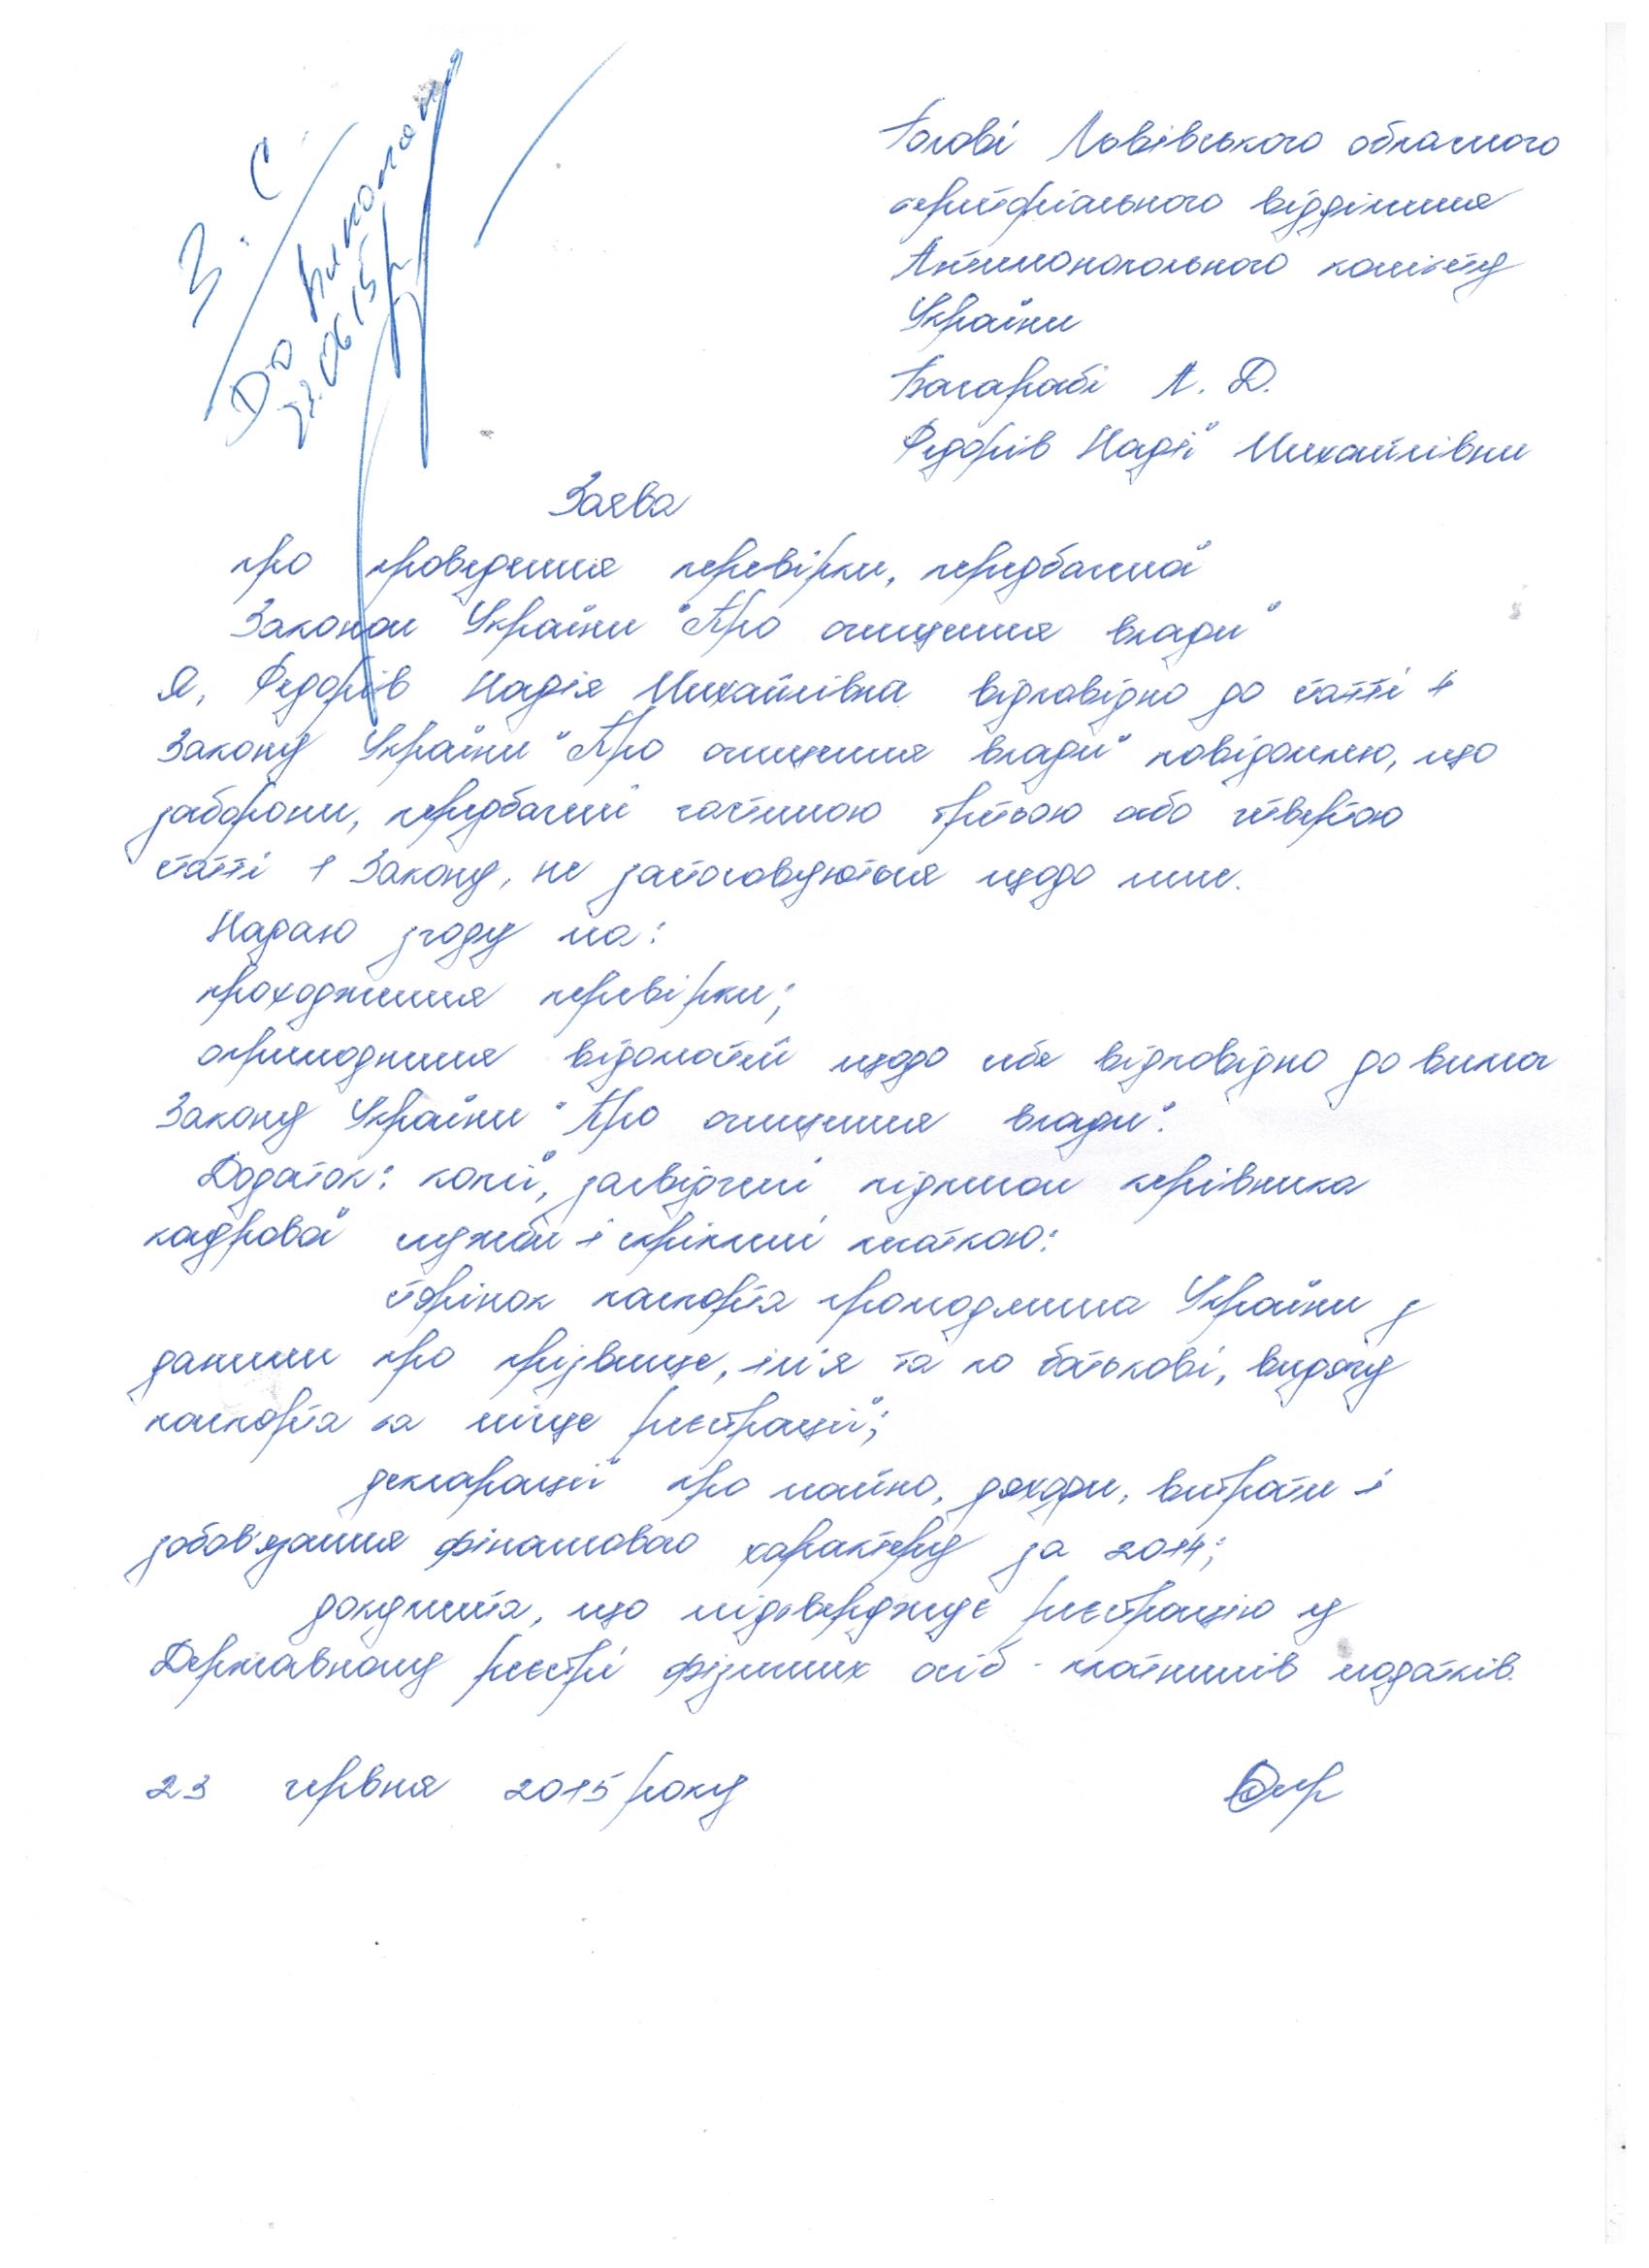 З. С.
До виконання
23.06.15р
Голові Львівського обласного
територіального відділення
Антимонопольного комітету
України
Багарабі А. Д.
Федорів Надії Михайлівни
Заява
про проведення перевірки, передбаченої
Законом України "Про очищення влади"
Я, Федорів Надія Михайлівна відповідно до статті 4
Закону України "Про очищення влади" повідомляю, що
заборони, передбачені частиною третьою або четвертою
статті 1 Закону, не застосовуються щодо мене.
Надаю згоду на:
проходження перевірки;
оприлюднення відомостей щодо себе відповідно до вимог
Закону України "Про очищення влади".
Додаток: копії, засвідчені підписом керівника
кадрової служби і скріплені печаткою:
сторінок паспорта громадянина України з
даними про прізвище, ім'я та по батькові, видачу
паспорта та місце реєстрації;
декларації про майно, доходи, витрати і
зобов'язання фінансового характеру за 2014;
документа, що підтверджує реєстрацію у
Державному реєстрі фізичних осіб - платників податків.
23 червня 2015 року